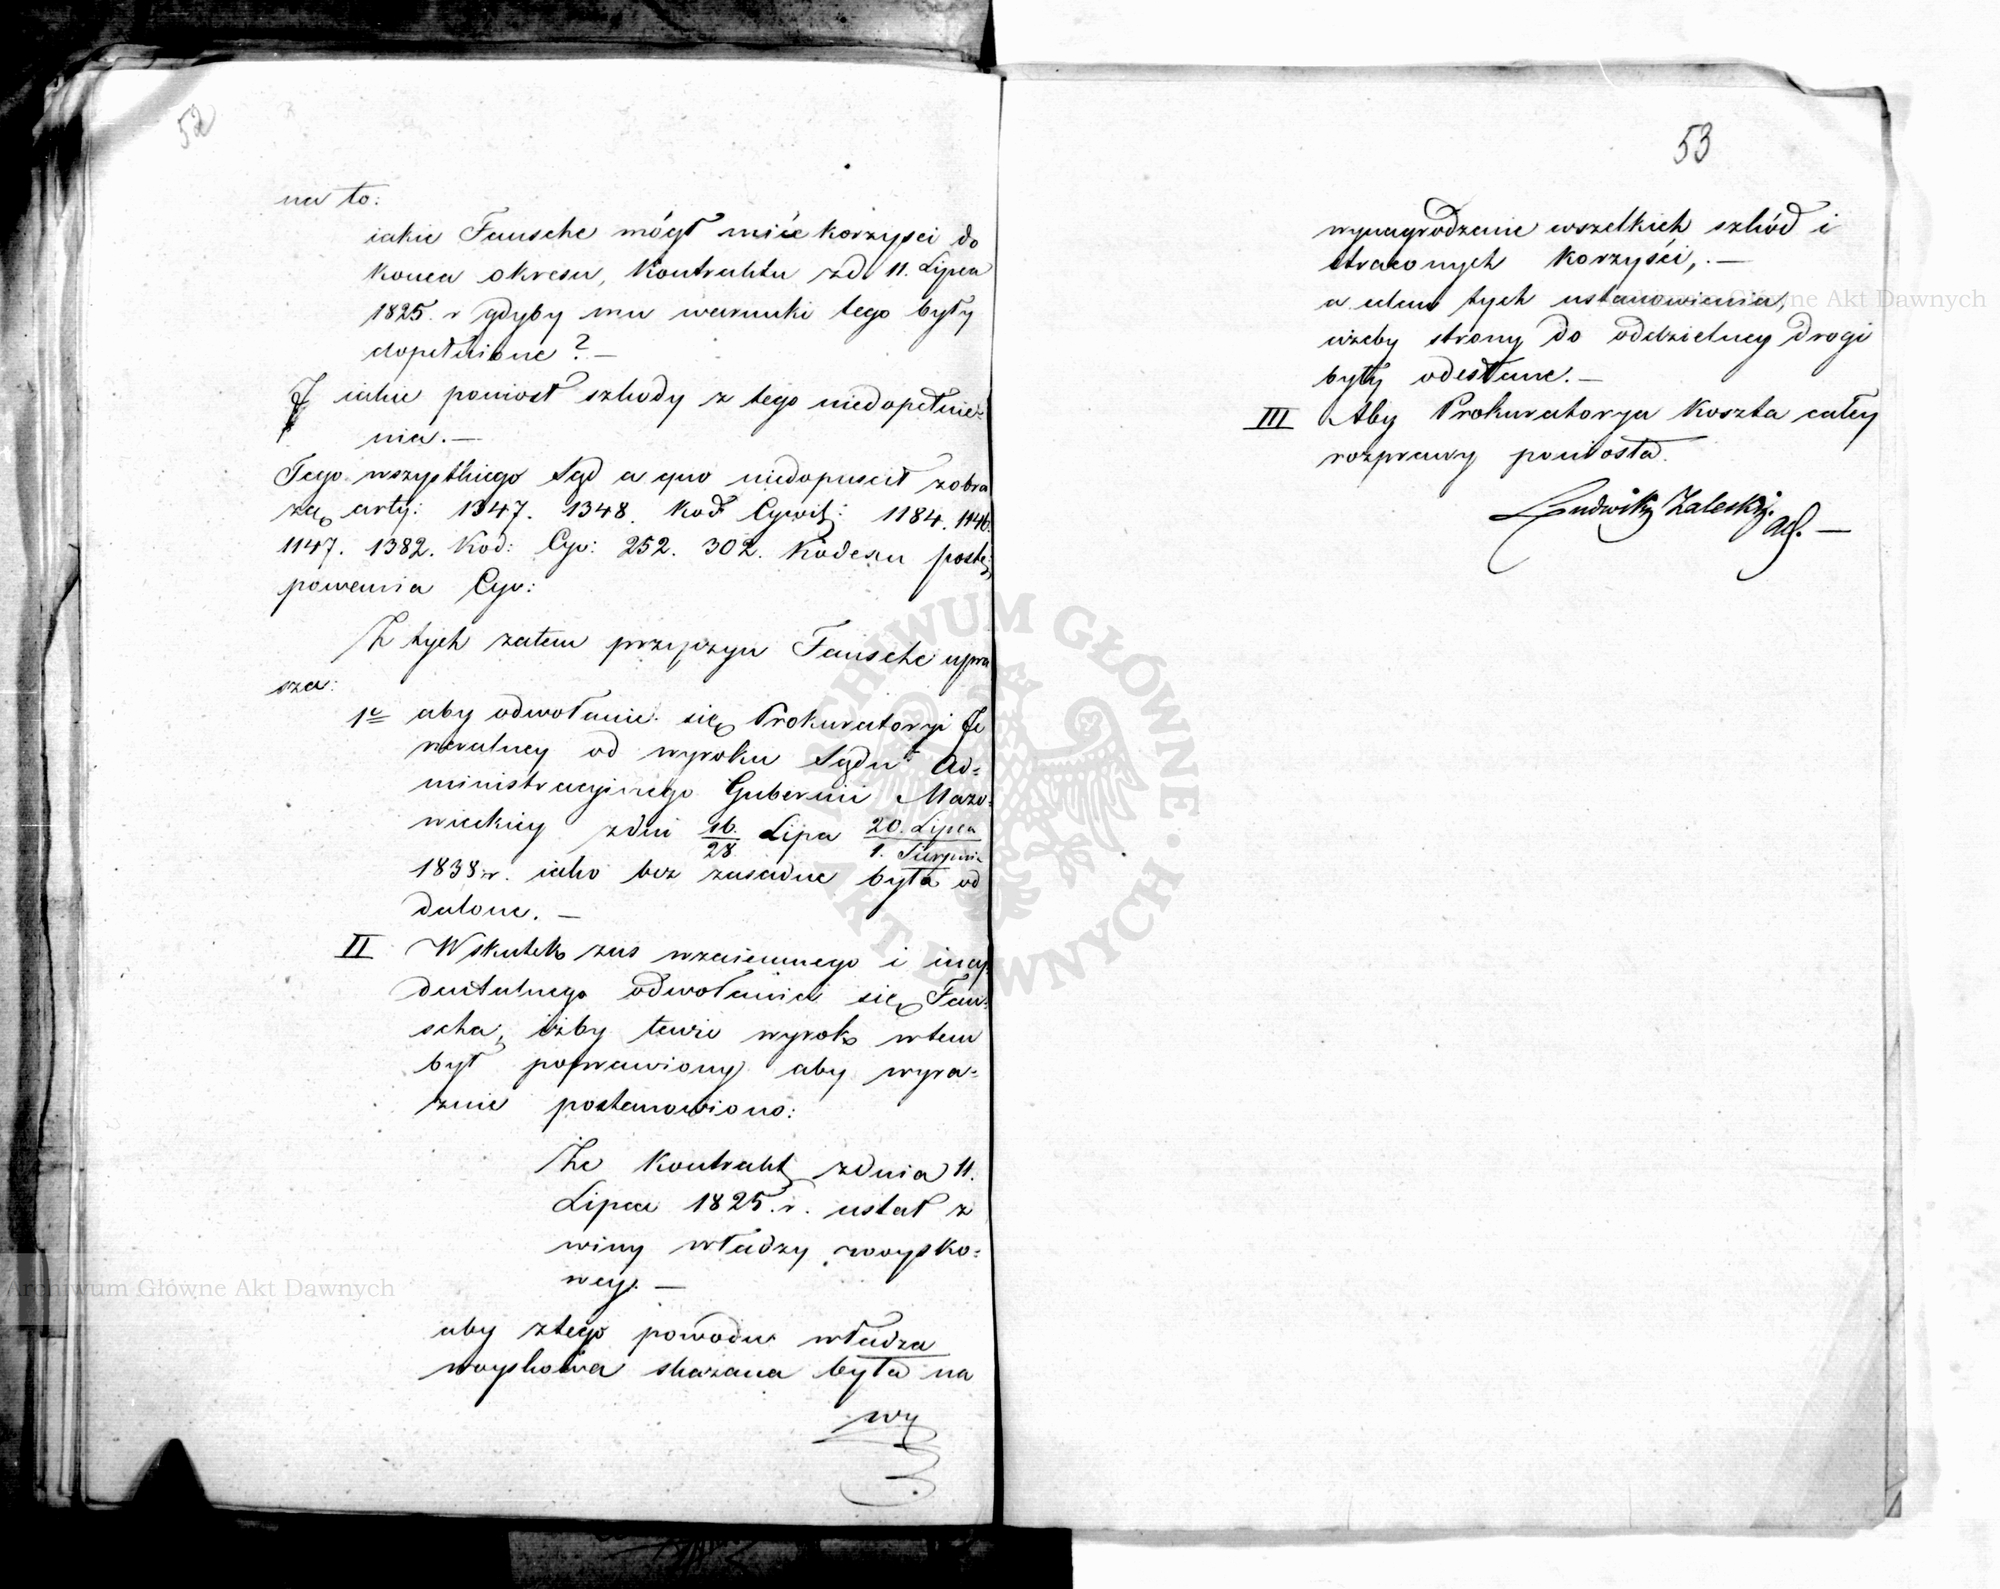 52
na to:
iakie Fansche mógł mieć korzyści do
końca okresu, Kontraktu zd. 11. Lipca
1825. r gdyby mu warunki tego były
dopełnione? —
I iakie poniosł szkody z tego niedopełnie-
nia. —
Tego wszystkiego Sąd a quo niedopuscił zobra
zą arty: 1347. 1348. Kod: Cywil: 1184. 1146.
1147. 1382. Kod: Cyw: 252. 302. Kodexu postę
powania Cyw:
Z tych zatem przyczyn Fansche upra
sza:
1e aby odwołanie się Prokuratoryi Je
neralney od wyroku Sądu Ad-
ministracyjnego Gubernii Mazo-
wieckiey zdni 16./28. Lipa 20. Lipca/1. Sierpnia
1838 r. iako bez zasadne była od
dalone. —
II Wskutek zas wzaiemnego i incy
dentalnego odwołania się Fan-
scha, iżby tenże wyrok wtem
był poprawiony aby wyra-
znie postanowiono:
Że Kontrakt zdnia 11.
Lipca 1825. r. ustał z
winy władzy woysko-
wey. —
aby ztego powodu władza
woyskowa skazana była na
wy
53
wynagrodzenie wszelkich szkód i
straconych korzyści, . —
a celem tych ustanowienia,
iżeby strony do oddzielney drogi
były odesłane. —
III Aby Prokuratorya Koszta całey
rozprawy poniosła.
Ludwik Zaleski.
Archiwum Główne Akt Dawnych
Archiwum Główne Akt Dawnych
ARCHIWUM GŁÓWNE AKT DAWNYCH